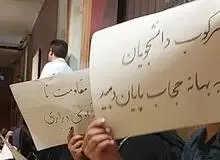 سرکوب دانشجویان
بهانه حجاب پایان دهید
مقاومت تا